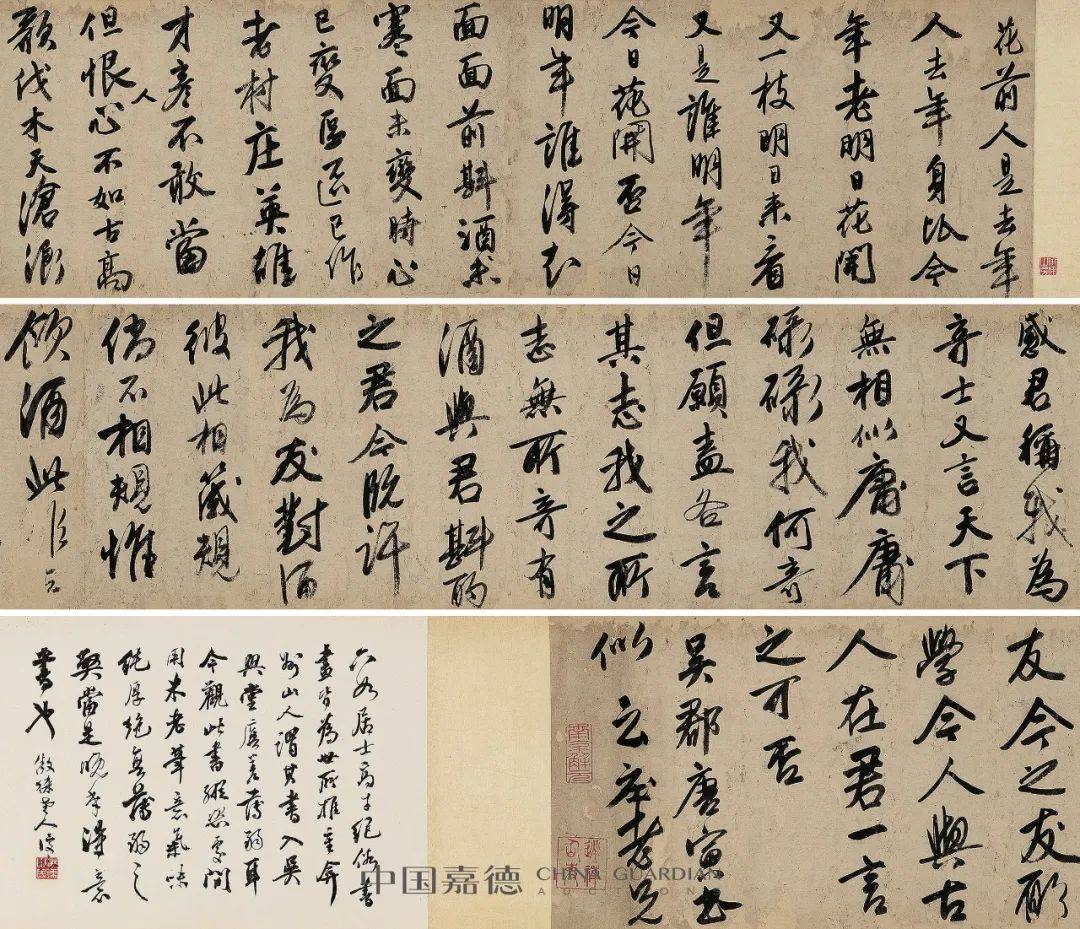 花前人是去年
人去年身比今
年老明日花開
又一枝明日来看
又是誰明年
今日花開否今日
明年誰得知
面面前斟酒未
寒面未變時心
已變區區已作
老村庄英雄
才彥不敢當
但恨人心不如古高
歌伐木天滄浪
感君稱我為
奇士又言天下
無相似庸庸
碌碌我何奇
但願盡各言
其志我之所
志無所奇有
酒與君斟酌
之君今既許
我為友對酒
彼此相箴規
倘不相規惟
飲酒此
友今之友願
學今人與古
人在君一言
之可否
吳郡唐寅書
似老兄
六如居士高才絕俗書
畫皆為世所推重弇
州山人謂其書入吳
興堂廡差薄弱耳
今觀此書縱恣處間
用米老筆意氣味
純厚絕無薄弱之
弊當是晚年得意
書也
中国嘉德 CHINA GUARDIAN
AUCTIONS